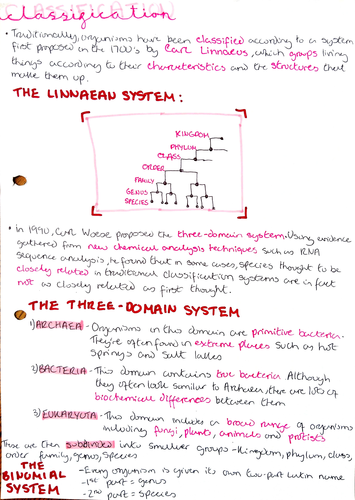 CLASSIFICATION
• Traditionally, organisms have been classified according to a system
first proposed in the 1700's by Carl Linnaeus, which groups living
things according to their characteristics and the structures that
make them up.
THE LINNAEAN SYSTEM:
KINGDOM
PHYLUM
CLASS
ORDER
FAMILY
GENUS
SPECIES
• in 1990, Carl Woese proposed the three-domain system. Using evidence
gathered from new chemical analysis techniques such as RNA
sequence analysis, he found that in some cases, species thought to be
closely related in traditional classification systems are in fact
not as closely related as first thought.
THE THREE-DOMAIN SYSTEM
1) ARCHAEA - Organisms in this domain are primitive bacteria.
They're often found in extreme places such as hot
springs and salt lakes
2) BACTERIA - This domain contains true bacteria. Although
they often look similar to Archaea, there are lots of
biochemical differences between them
3) EUKARYOTA - This domain includes a broad range of organisms
including fungi, plants, animals and protists
These are then subdivided into smaller groups - Kingdom, phylum, class,
order, family, genus, species
THE BINOMIAL SYSTEM
- Every organism is given its own two-part Latin name
- 1st part = genus
- 2nd part = species